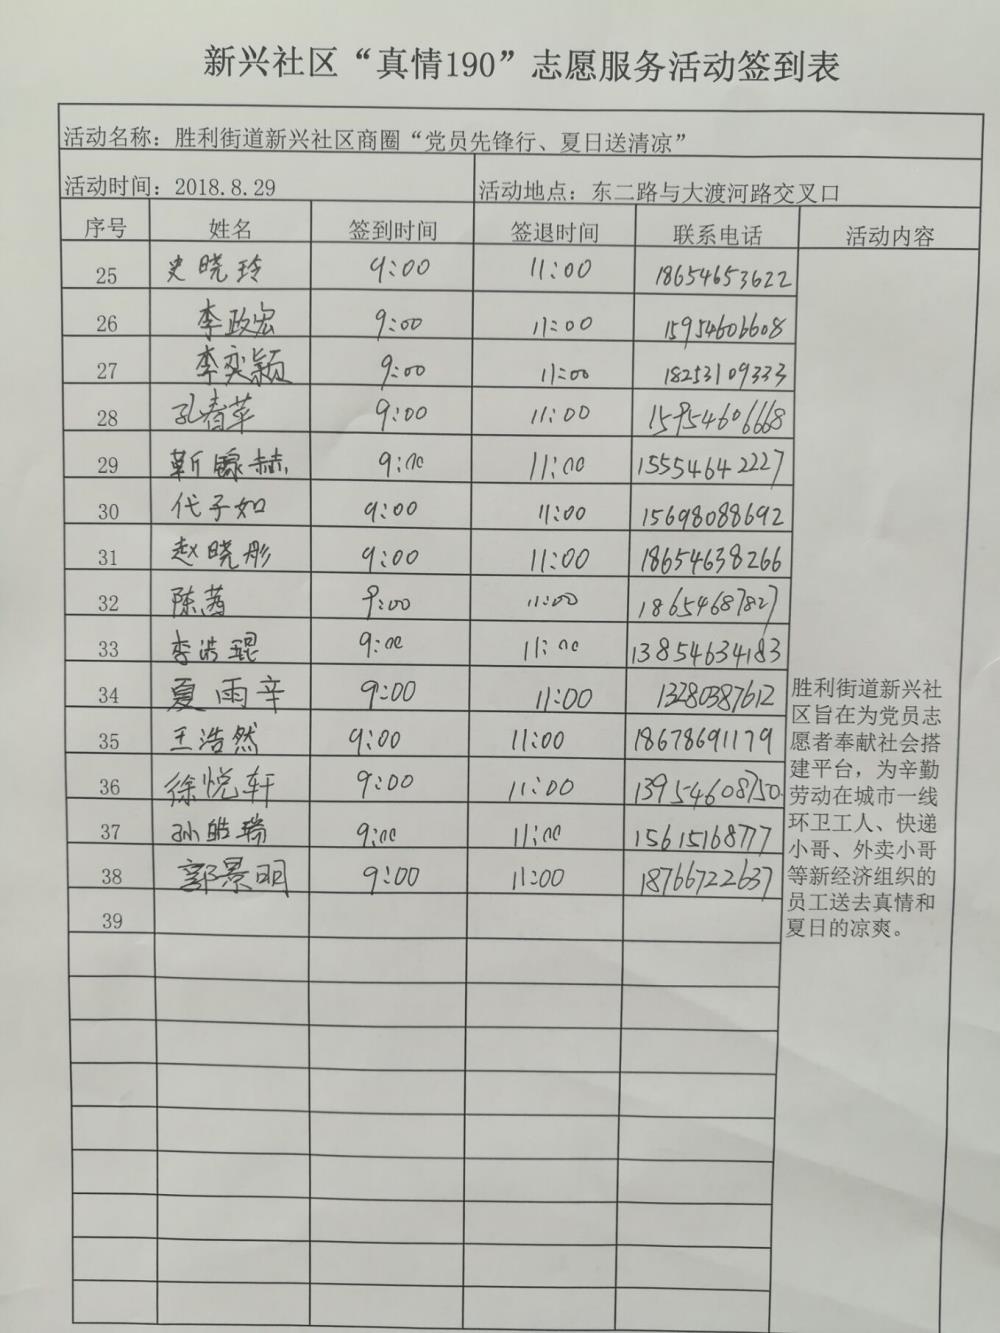 新兴社区“真情190”志愿服务活动签到表
活动名称：胜利街道新兴社区商圈“党员先锋行、夏日送清凉”
活动时间：2018.8.29 活动地点：东二路与大渡河路交叉口
序号 姓名 签到时间 签退时间 联系电话 活动内容
25 史晓玲 9:00 11:00 18654653622
26 李政宏 9:00 11:00 15954606608
27 李奕颖 9:00 11:00 18253109333
28 孔春苹 9:00 11:00 15954606668
29 靳赫 9:00 11:00 15554642227
30 代子如 9:00 11:00 15698088692
31 赵晓彤 9:00 11:00 18654638266
32 陈茜 9:00 11:00 18654687827
33 李浩琨 9:00 11:00 13854634183
34 夏雨辛 9:00 11:00 13280387612
35 王浩然 9:00 11:00 18678691179
36 徐悦轩 9:00 11:00 13954608750
37 孙皓瑞 9:00 11:00 15615168777
38 郭景明 9:00 11:00 18766722637
39
胜利街道新兴社
区旨在为党员志
愿者奉献社会搭
建平台，为辛勤
劳动在城市一线
环卫工人、快递
小哥、外卖小哥
等新经济组织的
员工送去真情和
夏日的凉爽。